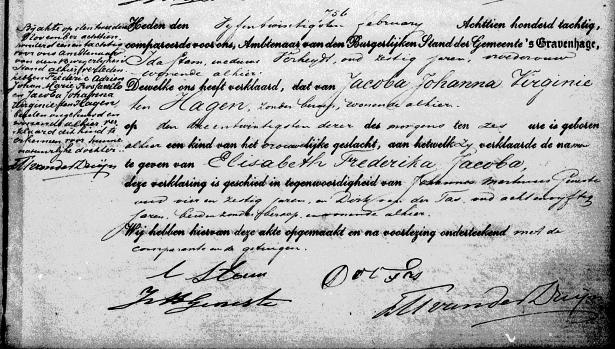 756
Heden den Vijfentwintigsten February Achttien honderd tachtig,
compareerde voor ons, Ambtenaar van den Burgerlijken Stand der Gemeente 's Gravenhage,
Ida Stam, weduwe Verheydt, oud zestig jaren, vroedvrouw
wonende alhier.
Dewelke ons heeft verklaard, dat van Jacoba Johanna Virginie
ten Hagen, zonder beroep, wonende alhier.
op den drieentwintigsten dezer des morgens ten zes ure is geboren
alhier een kind van het vrouwelijk geslacht, aan hetwelk zij verklaarde de namen
te geven van Elisabeth Frederika Jacoba,
deze verklaring is geschied in tegenwoordigheid van Johannes Martinus
oud vier en zestig jaren, en Dirk van der Tas, oud acht en vijftig
jaren, beiden zonder beroep, en wonende alhier.
Wij hebben hiervan deze akte opgemaakt en na voorlezing onderteekend met de
comparante en de getuigen.
Bij akte op den
November achttien
honderd een en tachtig
voor ons Ambtenaar
van den Burgerlijken
Stand alhier verleden
hebben Frédéric Adrien
Johan Marie
en Jacoba Johanna
Virginie ten Hagen,
wonende alhier ver-
klaard dit kind te
erkennen voor hunne
natuurlijke dochter.